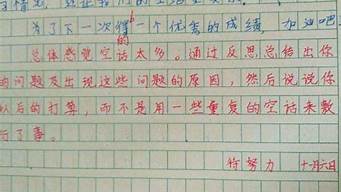 为了下一次得一个优秀的成绩，加油吧
的
总体感觉空话太多。通过反思总结出你
的问题及出现这些问题的原因，然后说说你
以后的打算，而不是用一些重复的空话来敷
衍了事。
待努力 十一月六日